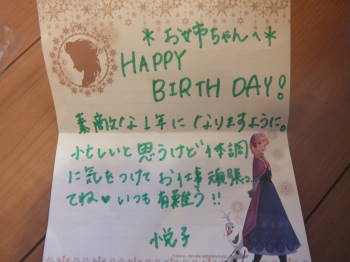 ＊お姉ちゃんへ＊
HAPPY
BIRTH DAY!
素敵な1年になりますように。
忙しいと思うけど体調
に気をつけてお仕事頑張っ
てね♥いつも有難う!!
悦子